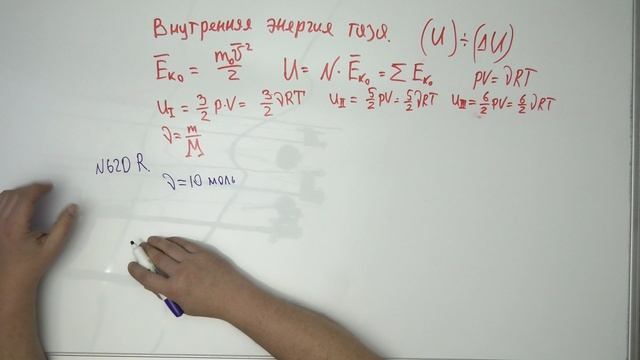 Внутренняя энергия газа. (U) ÷ (ΔU)
Ēк₀ = m₀v̄²/2 U = N · Ēк₀ = ∑ Eк₀ pV = νRT
U_I = 3/2 p·V = 3/2 νRT U_II = 5/2 pV = 5/2 νRT U_III = 6/2 pV = 6/2 νRT
ν = m/M
N620 R.
ν = 10 моль